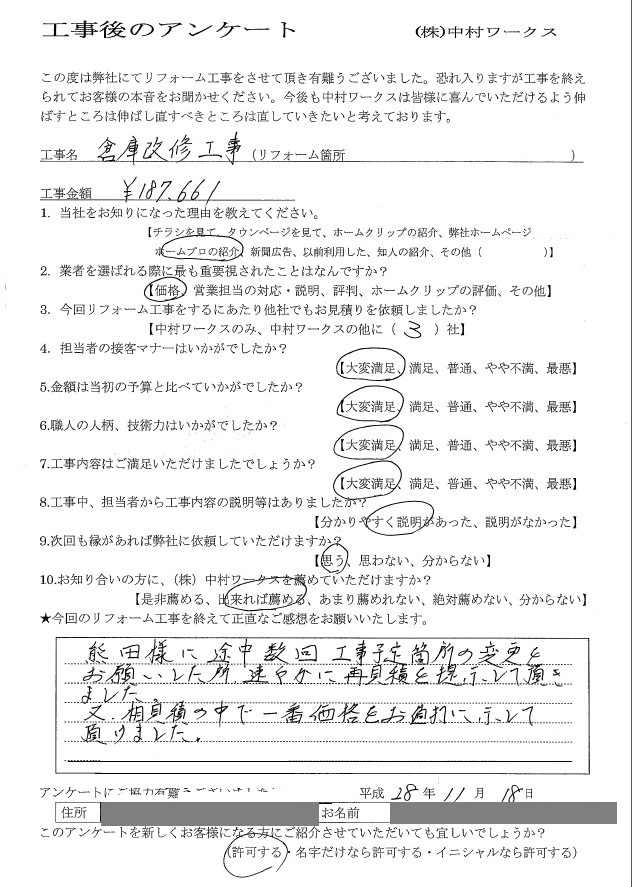 工事後のアンケート　(株)中村ワークス
この度は弊社にてリフォーム工事をさせて頂き有難うございました。恐れ入りますが工事を終え
られてお客様の本音をお聞かせください。今後も中村ワークスは皆様に喜んでいただけるよう伸
ばすところは伸ばし直すべきところは直していきたいと考えております。
工事名　倉庫改修工事（リフォーム箇所　）
工事金額　¥187.661
1．当社をお知りになった理由を教えてください。
【チラシを見て、タウンページを見て、ホームクリップの紹介、弊社ホームページ
ホームプロの紹介、新聞広告、以前利用した、知人の紹介、その他（　）】
2．業者を選ばれる際に最も重要視されたことはなんですか？
【価格、営業担当の対応・説明、評判、ホームクリップの評価、その他】
3．今回リフォーム工事をするにあたり他社でもお見積りを依頼しましたか？
【中村ワークスのみ、中村ワークスの他に（ 3 ）社】
4．担当者の接客マナーはいかがでしたか？
【大変満足、満足、普通、やや不満、最悪】
5.金額は当初の予算と比べていかがでしたか？
【大変満足、満足、普通、やや不満、最悪】
6.職人の人柄、技術力はいかがでしたか？
【大変満足、満足、普通、やや不満、最悪】
7.工事内容はご満足いただけましたでしょうか？
【大変満足、満足、普通、やや不満、最悪】
8.工事中、担当者から工事内容の説明等はありましたか？
【分かりやすく説明があった、説明がなかった】
9.次回も縁があれば弊社に依頼していただけますか？
【思う、思わない、分からない】
10.お知り合いの方に、（株）中村ワークスを薦めていただけますか？
【是非薦める、出来れば薦める、あまり薦めれない、絶対薦めない、分からない】
★今回のリフォーム工事を終えて正直なご感想をお願いいたします。
熊田様に途中数回工事予定箇所の変更を
お願いした所 速やかに再見積を提示して頂き
ました
又、相見積の中で一番価格をお値打に示して
頂けました。
アンケートにご協力有難うございました　平成 28 年 11 月 18 日
住所　お名前
このアンケートを新しくお客様になる方にご紹介させていただいても宜しいでしょうか？
（許可する・名字だけなら許可する・イニシャルなら許可する）